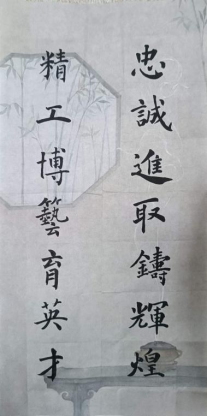 忠誠進取鑄輝煌
精工博藝育英才